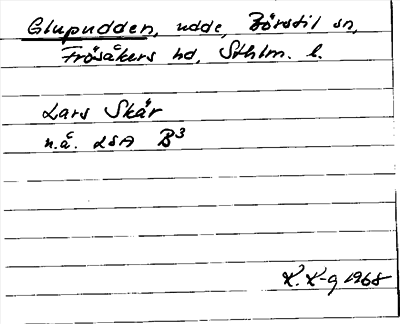 Glupudden, udde, Börstil sn,
Frösåkers hd, Sthlm. l.
Lars Skär
n.å. LSA B³
K. K-g 1968